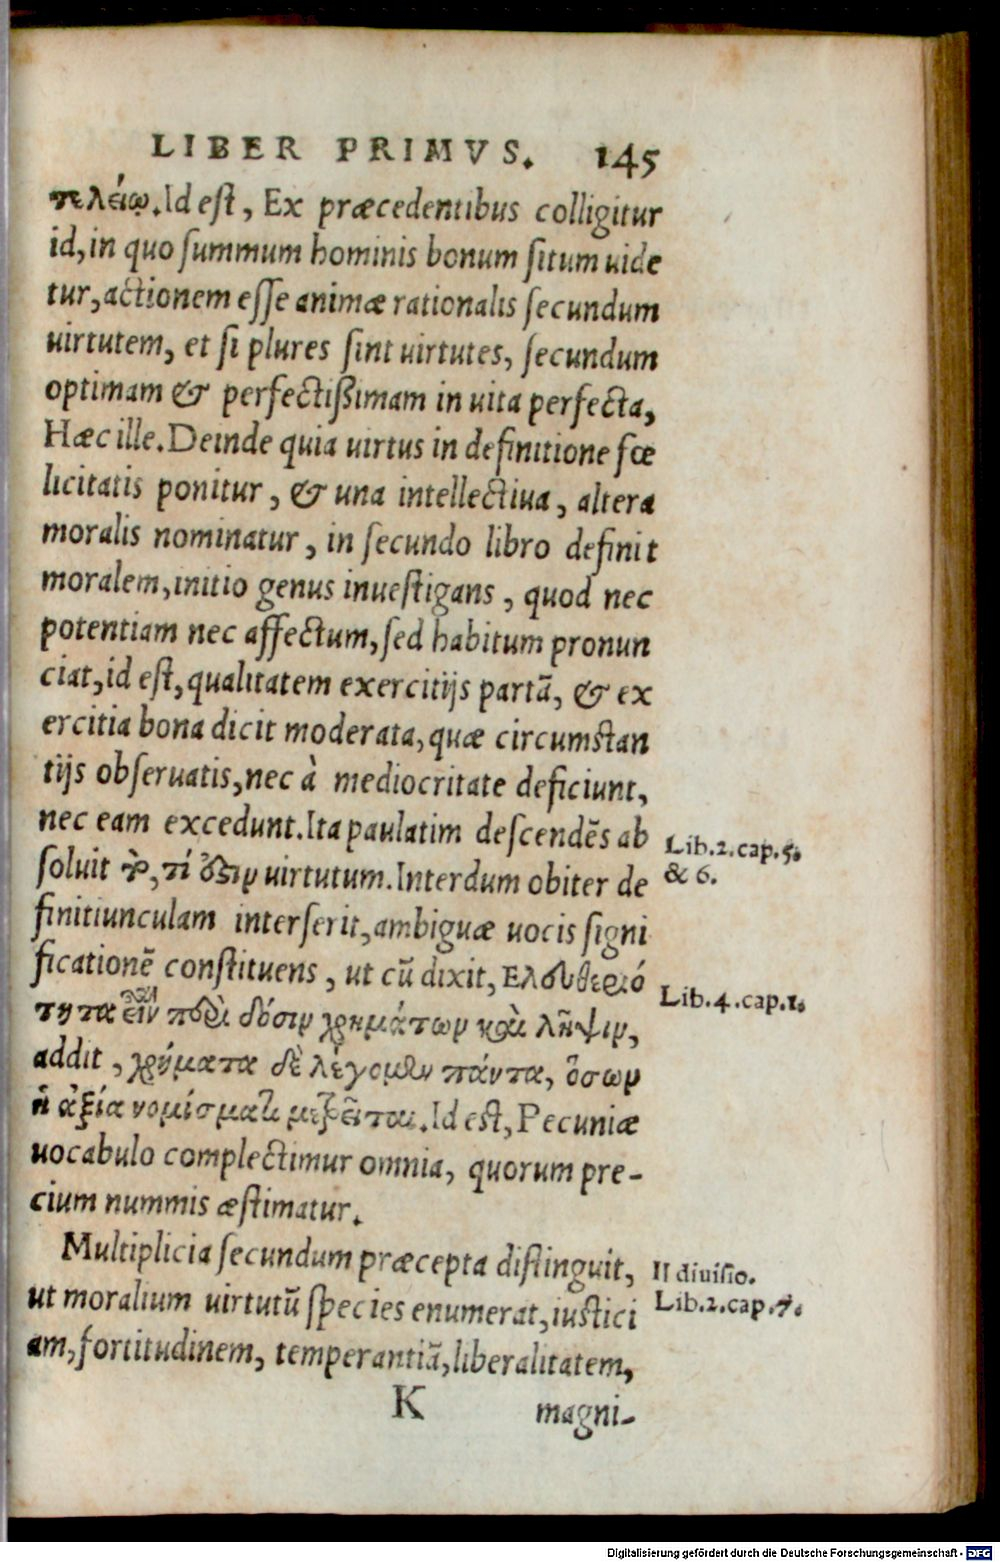 LIBER PRIMVS. 145
τελείῳ. Id est, Ex præcedentibus colligitur
id, in quo summum hominis bonum situm uide
tur, actionem esse animæ rationalis secundum
uirtutem, et si plures sint uirtutes, secundum
optimam & perfectißimam in uita perfecta,
Hæc ille. Deinde quia uirtus in definitione fœ
licitatis ponitur, & una intellectiua, altera
moralis nominatur, in secundo libro definit
moralem, initio genus inuestigans, quod nec
potentiam nec affectum, sed habitum pronun
ciat, id est, qualitatem exercitijs partã, & ex
ercitia bona dicit moderata, quæ circumstan
tijs obseruatis, nec à mediocritate deficiunt,
nec eam excedunt. Ita paulatim descendẽs ab
Lib.2.cap.5.
soluit τὸ, τί ὅξιν uirtutum. Interdum obiter de
& 6.
finitiunculam interserit, ambiguæ uocis signi
ficationẽ constituens, ut cũ dixit, Ελευθεριό
Lib.4.cap.1.
τητα εἶναι περὶ δόσιν χρημάτων καὶ λῆψιν,
addit, χρήματα δὲ λέγομεν πάντα, ὅσων
ἡ ἀξία νομίσματι μετρεῖται. Id est, Pecuniæ
uocabulo complectimur omnia, quorum pre-
cium nummis æstimatur.
Multiplicia secundum præcepta distinguit,
II diuisio.
ut moralium uirtutũ species enumerat, iustici
Lib.2.cap.7.
am, fortitudinem, temperantiã, liberalitatem,
K magni-
Digitalisierung gefördert durch die Deutsche Forschungsgemeinschaft - DFG